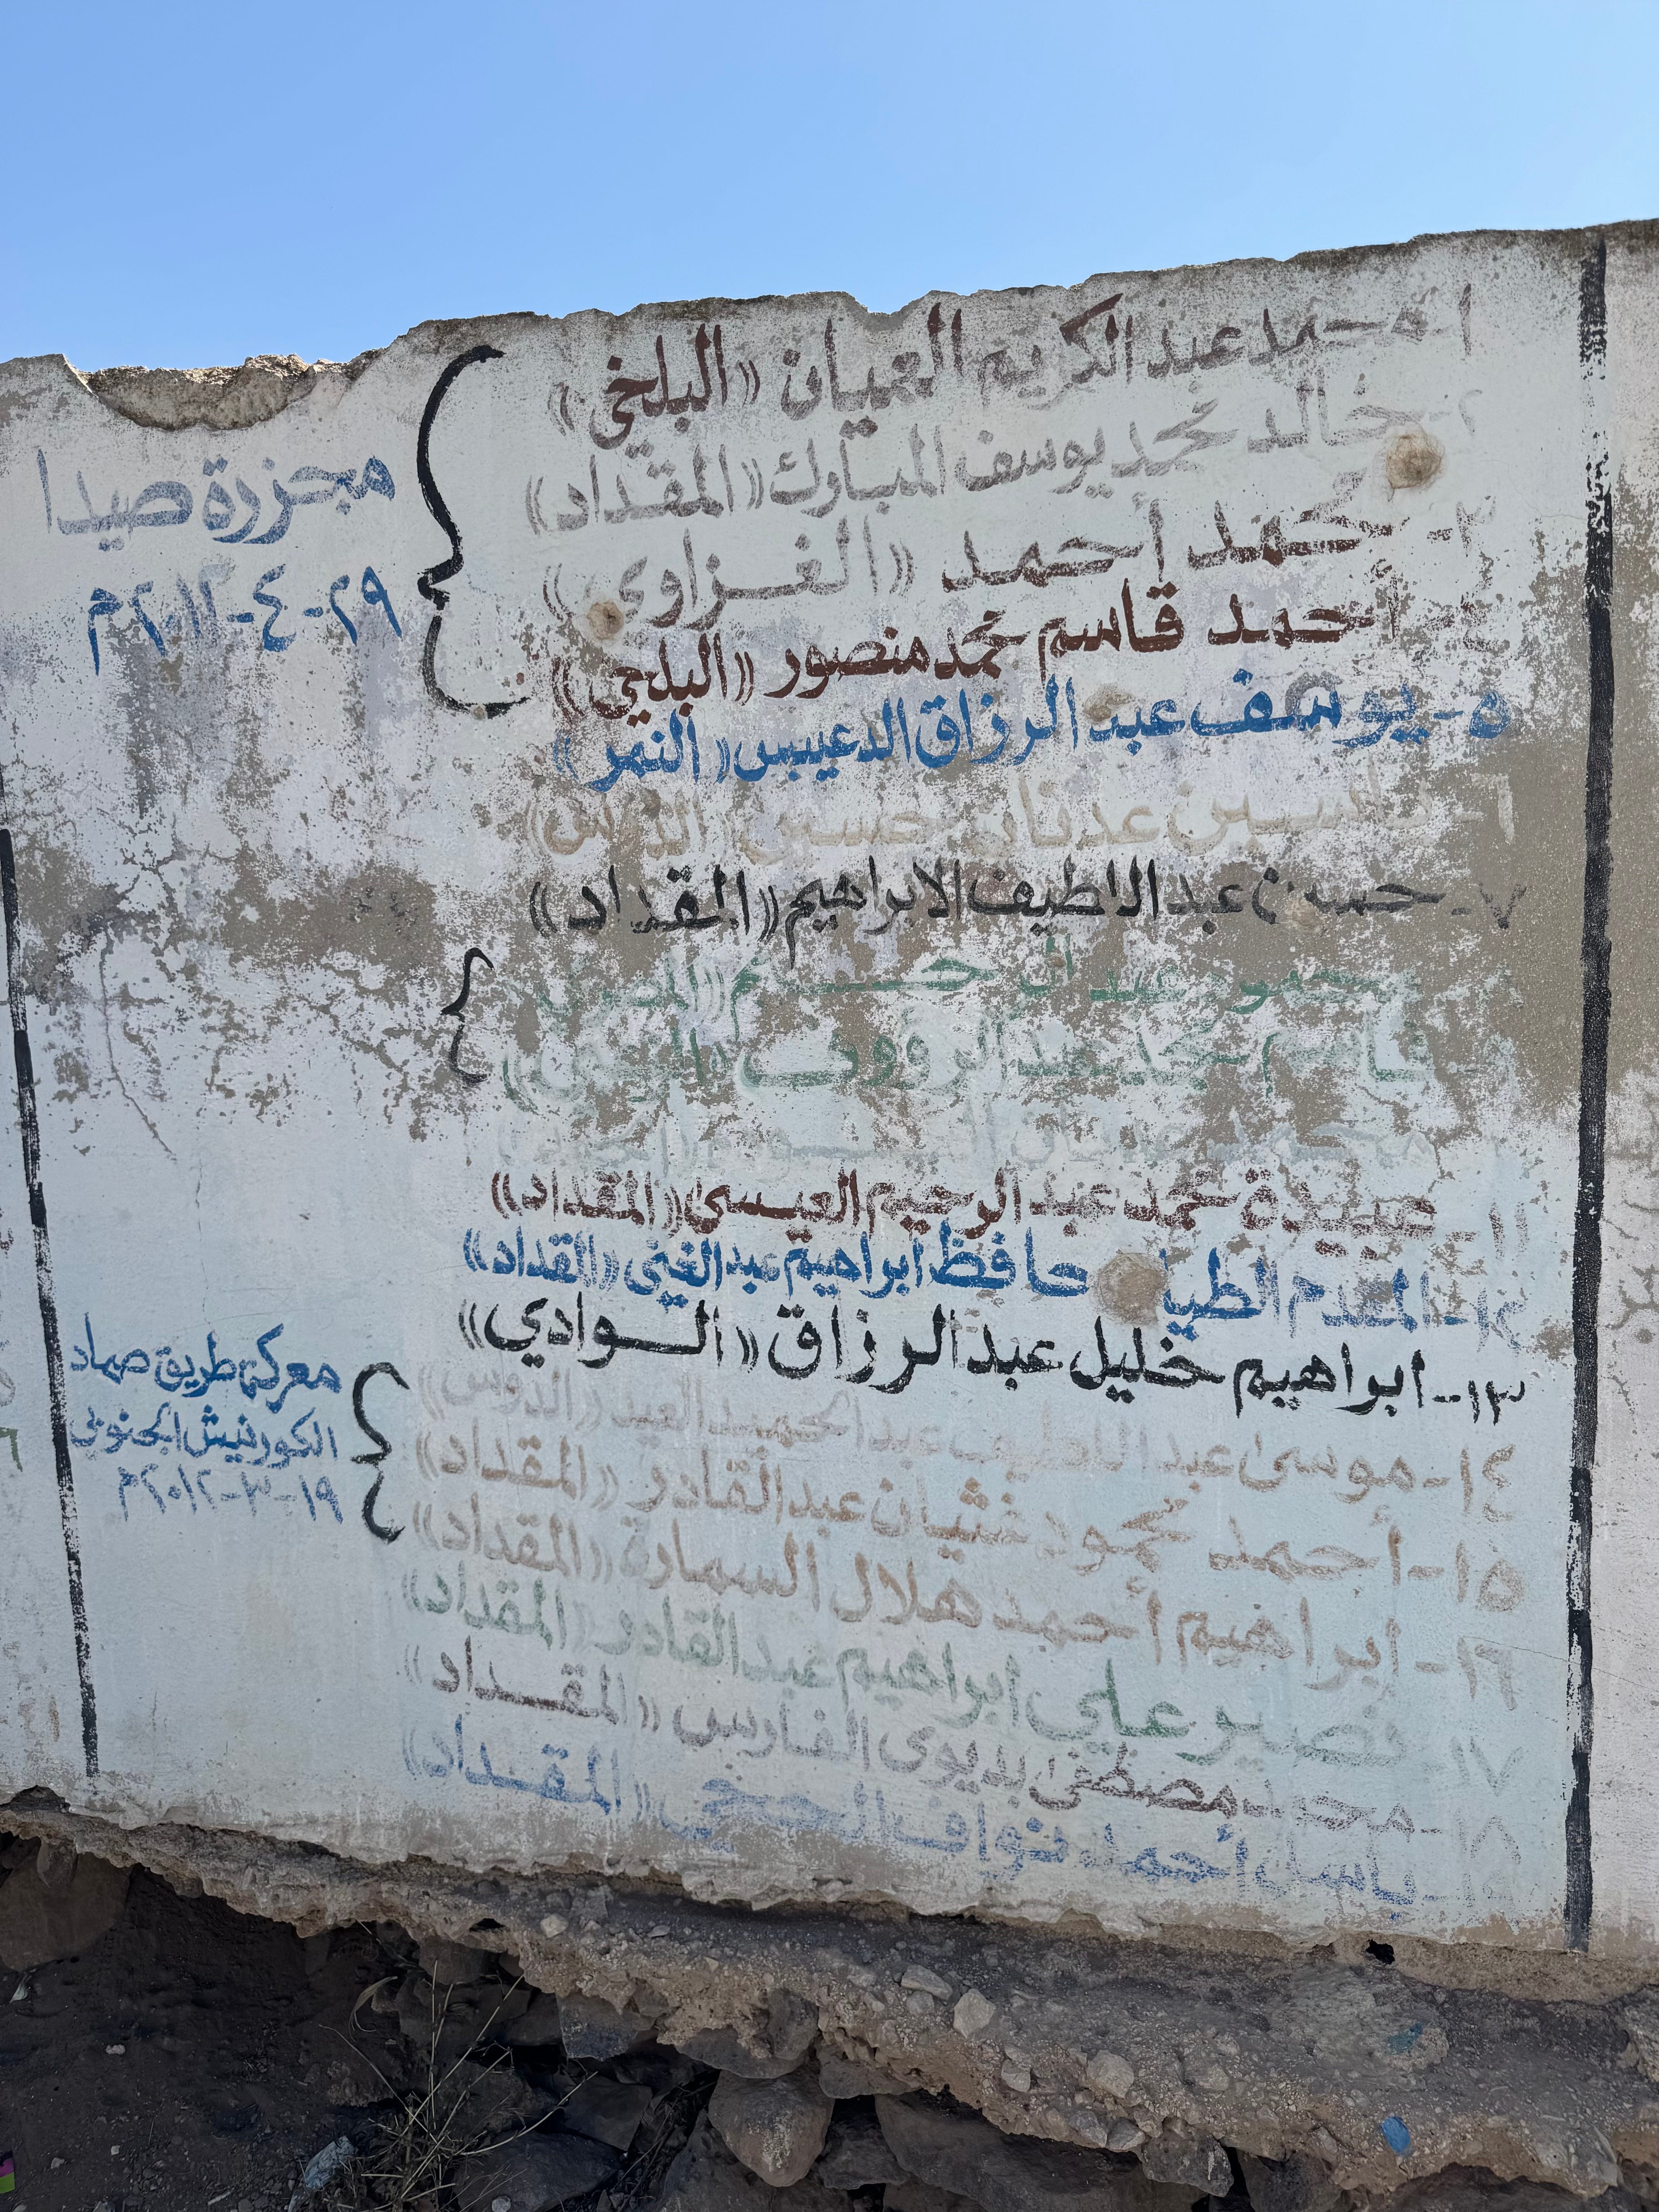 ١-محمد عبد الكريم العميان «البلخي»
٢-خالد محمد يوسف المبارك «المقداد»
٣-محمد أحمد «الغزاوي»
٤-أحمد قاسم محمد منصور «البلخي»
مجزرة صيدا
٢٩-٤-٢٠١٢م
٥-يوسف عبد الرزاق الدعيبس «النمر»
٦-ياسين عدنان حسين
٧-حسن عبد اللطيف الابراهيم «المقداد»
محمود عبد
قاسم محمد عبد الرؤوف
محمد عدنان
١١-عبيدة محمد عبد الرحيم العيسى «المقداد»
١٢-المقدم الطيا حافظ ابراهيم عبد الغني «المقداد»
١٣-ابراهيم خليل عبد الرزاق «السوادي»
١٤-موسى عبد اللطيف عبد الحميد العبد «الدوس»
١٥-أحمد محمود غثيان عبد القادر «المقداد»
١٦-ابراهيم أحمد هلال السمارة «المقداد»
معركة طريق صماد
الكورنيش الجنوبي
١٩-٣-٢٠١٢م
١٧ نصير علي ابراهيم عبد القادر «المقداد»
١٨-محمد مصطفى بديوي الفارس «المقداد»
١٩-باسل أحمد نواف «المقداد»